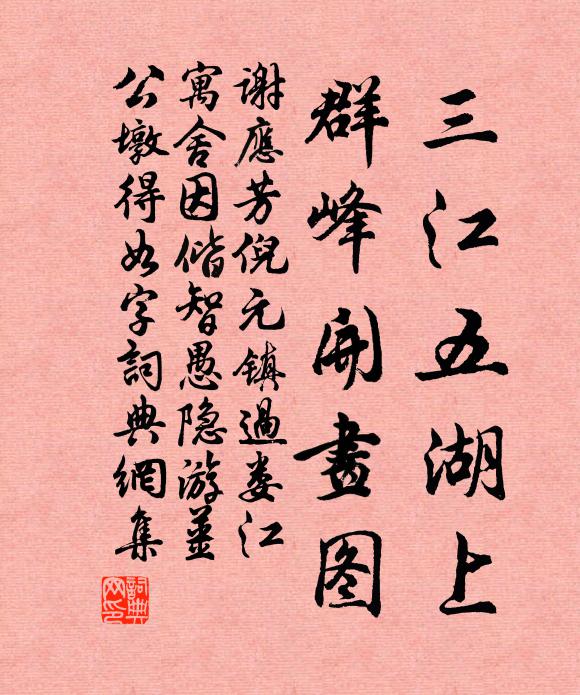 三江五湖上
群峰開畫图
谢應芳倪元鎮過娄江
寓舍因偕智愚隐游薑
公墩得如字詞典網集
詞典网印